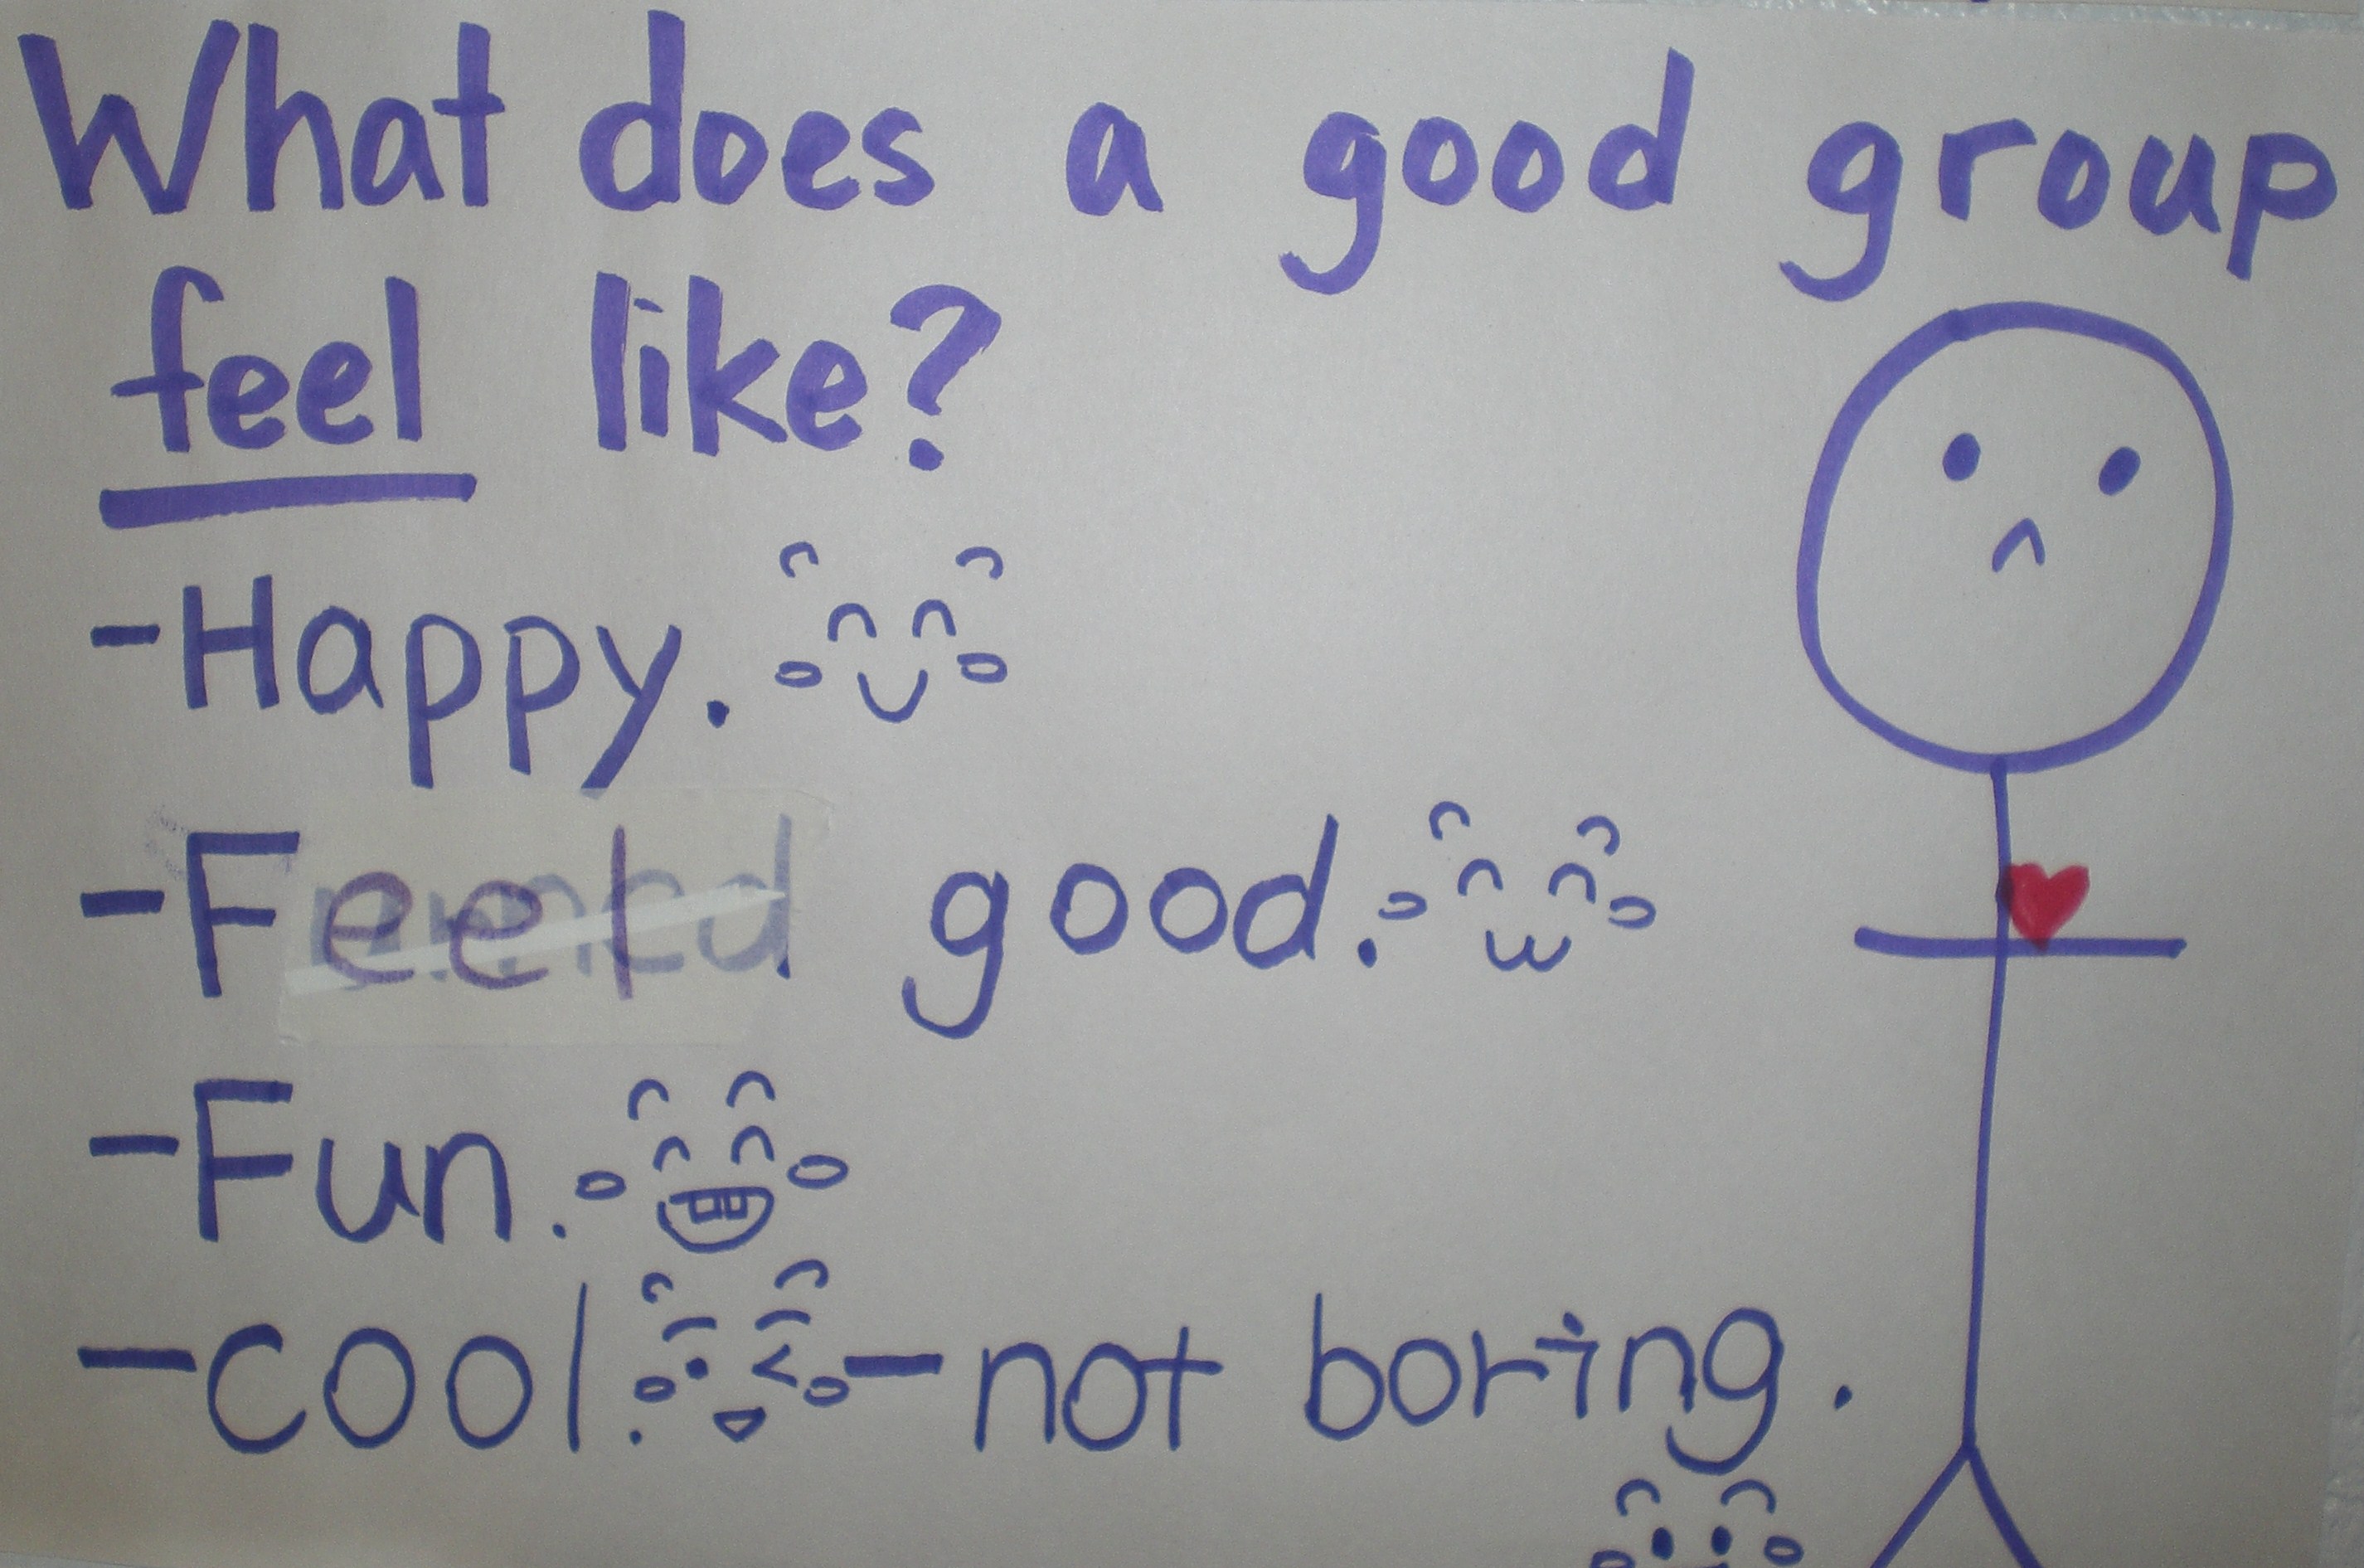 What does a good group
feel like?
-Happy.
-Feel good.
-Fun.
-cool. -not boring.